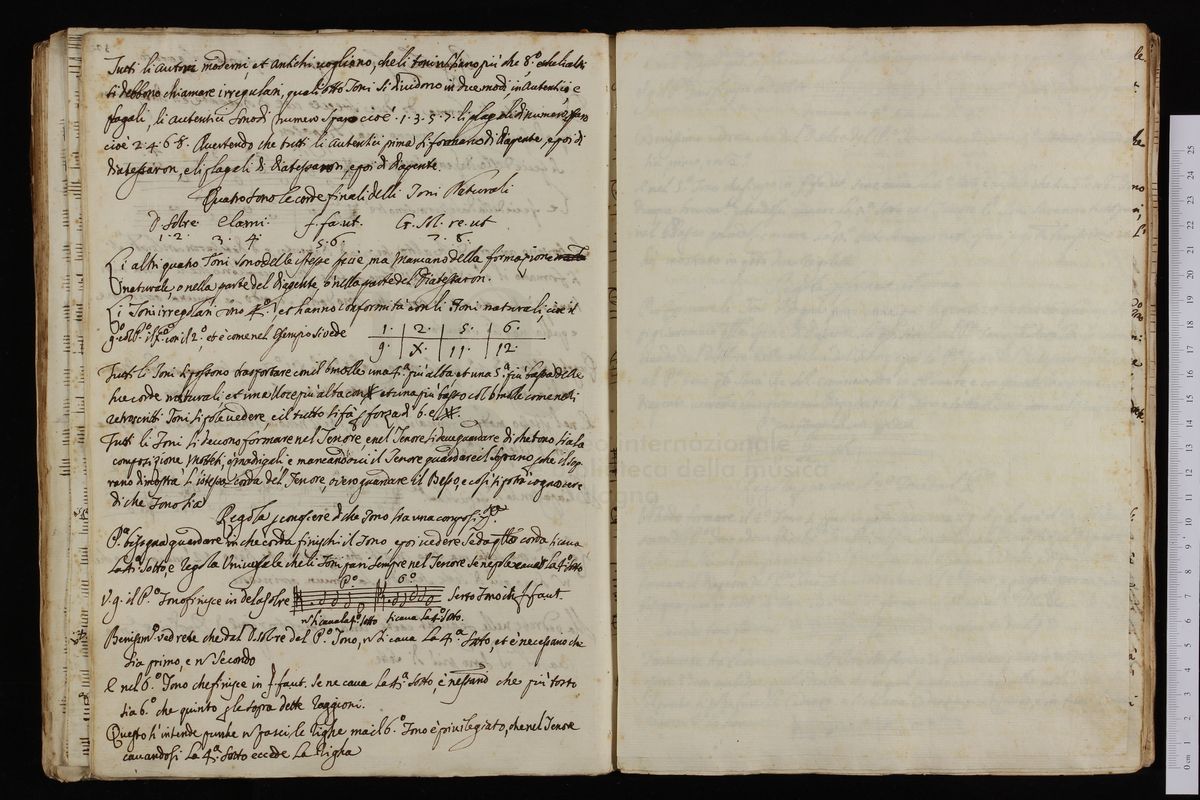 Tutti li autori moderni, et antichi vogliono, che li toni non siano più che 8.º che li altri
si debbono chiamare irregolari, quali otto Toni si dividono in due modi, in Autentici e
Plagali, li autentici sono di numero sparo cioè .1.3.5.7. li plagali di numero paro
cioè 2.4.6.8. Avertendo che tutti li autentici prima si formano di diapente, e poi di
diatessaron, e li plagali di diatessaron, e poi di diapente.
Quatro sono le corde finali delli Toni Naturali
D. Solre Elami. F. fa ut. G. Sol. re. ut
1. 2. 3. 4. 5. 6. 7. 8.
Li altri quatro Toni sono delle stesse specie, ma mancano della formazione
naturale, o nella parte del diapente, o nella parte del diatessaron.
Li Toni irregolari sono 4.º et hanno conformità con li Toni naturali cioè il
9.º col P.º il X.º con il 2.º, et è come nel esempio si vede
1. | 2. | 5. | 6.
9. | X. | 11. | 12.
Tutti li Toni si possono trasportare con il b molle una 4.ª più alta et una 5.ª più bassa delle
sue corde naturali, et una Voce più alta con X et una più basso col b molle come nelli
retroscritti Toni si pole vedere, e il tutto si fa p forza di b. e X.
Tutti li Toni si devono formare nel Tenore, e nel Tenore si deve guardare di che tono sia la
composizione, Motteti, o Madrigali, e mancandoci il Tenore guardare il Soprano, che il Sop-
rano dimostra l'istessa corda del Tenore, overo guardare il Basso, e così si potrà cognoscere
di che Tono sia
Regola p conoscere di che Tono sia una composi.ne
P.ª bisogna guardare in che corda finischi il Tono e poi vedere se da q.sta corda si cava
la 4.ª sotto, è regola Universale che li Toni pari sempre nel Tenore se ne pole cavar la 4.ª sotto
V. g. il P.º Tono finisce in delasolre P.º 6.º sesto tono in f. faut.
n si cava la 4.ª sotto si cava la 4.ª sotto.
Benissim.º vedrete che dal D. Solre del P.º Tono, n si cava la 4.ª sotto, et è necessario che
sia primo, e n secondo
E nel 6.º Tono che finisce in f. faut. se ne cava la 4.ª sotto, è che più tosto
sia 6.º che quinto p le sopra dette raggioni.
Questo s'intende purché n si passi le righe, ma il 6.º Tono è privilegiato, che nel Tenore
cavandosi la 4.ª sotto eccede la Righa
Museo internazionale
e biblioteca della musica
Bologna